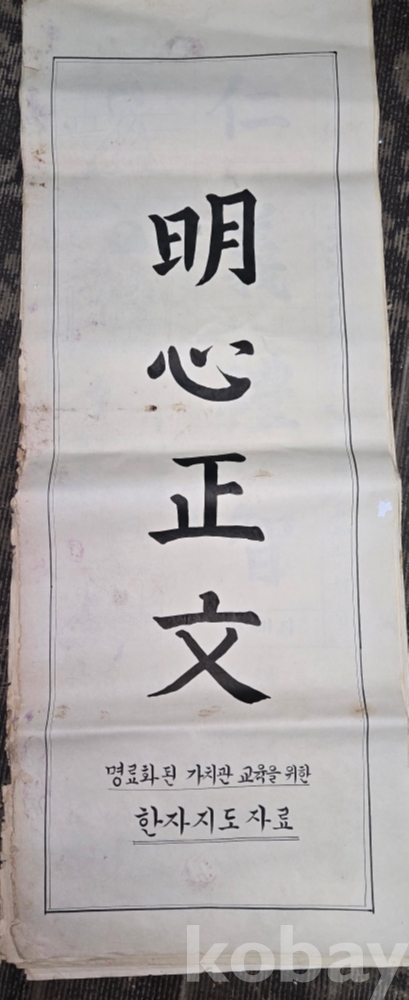 明心正文
명료화된 가치관 교육을 위한
한자지도자료
kobay